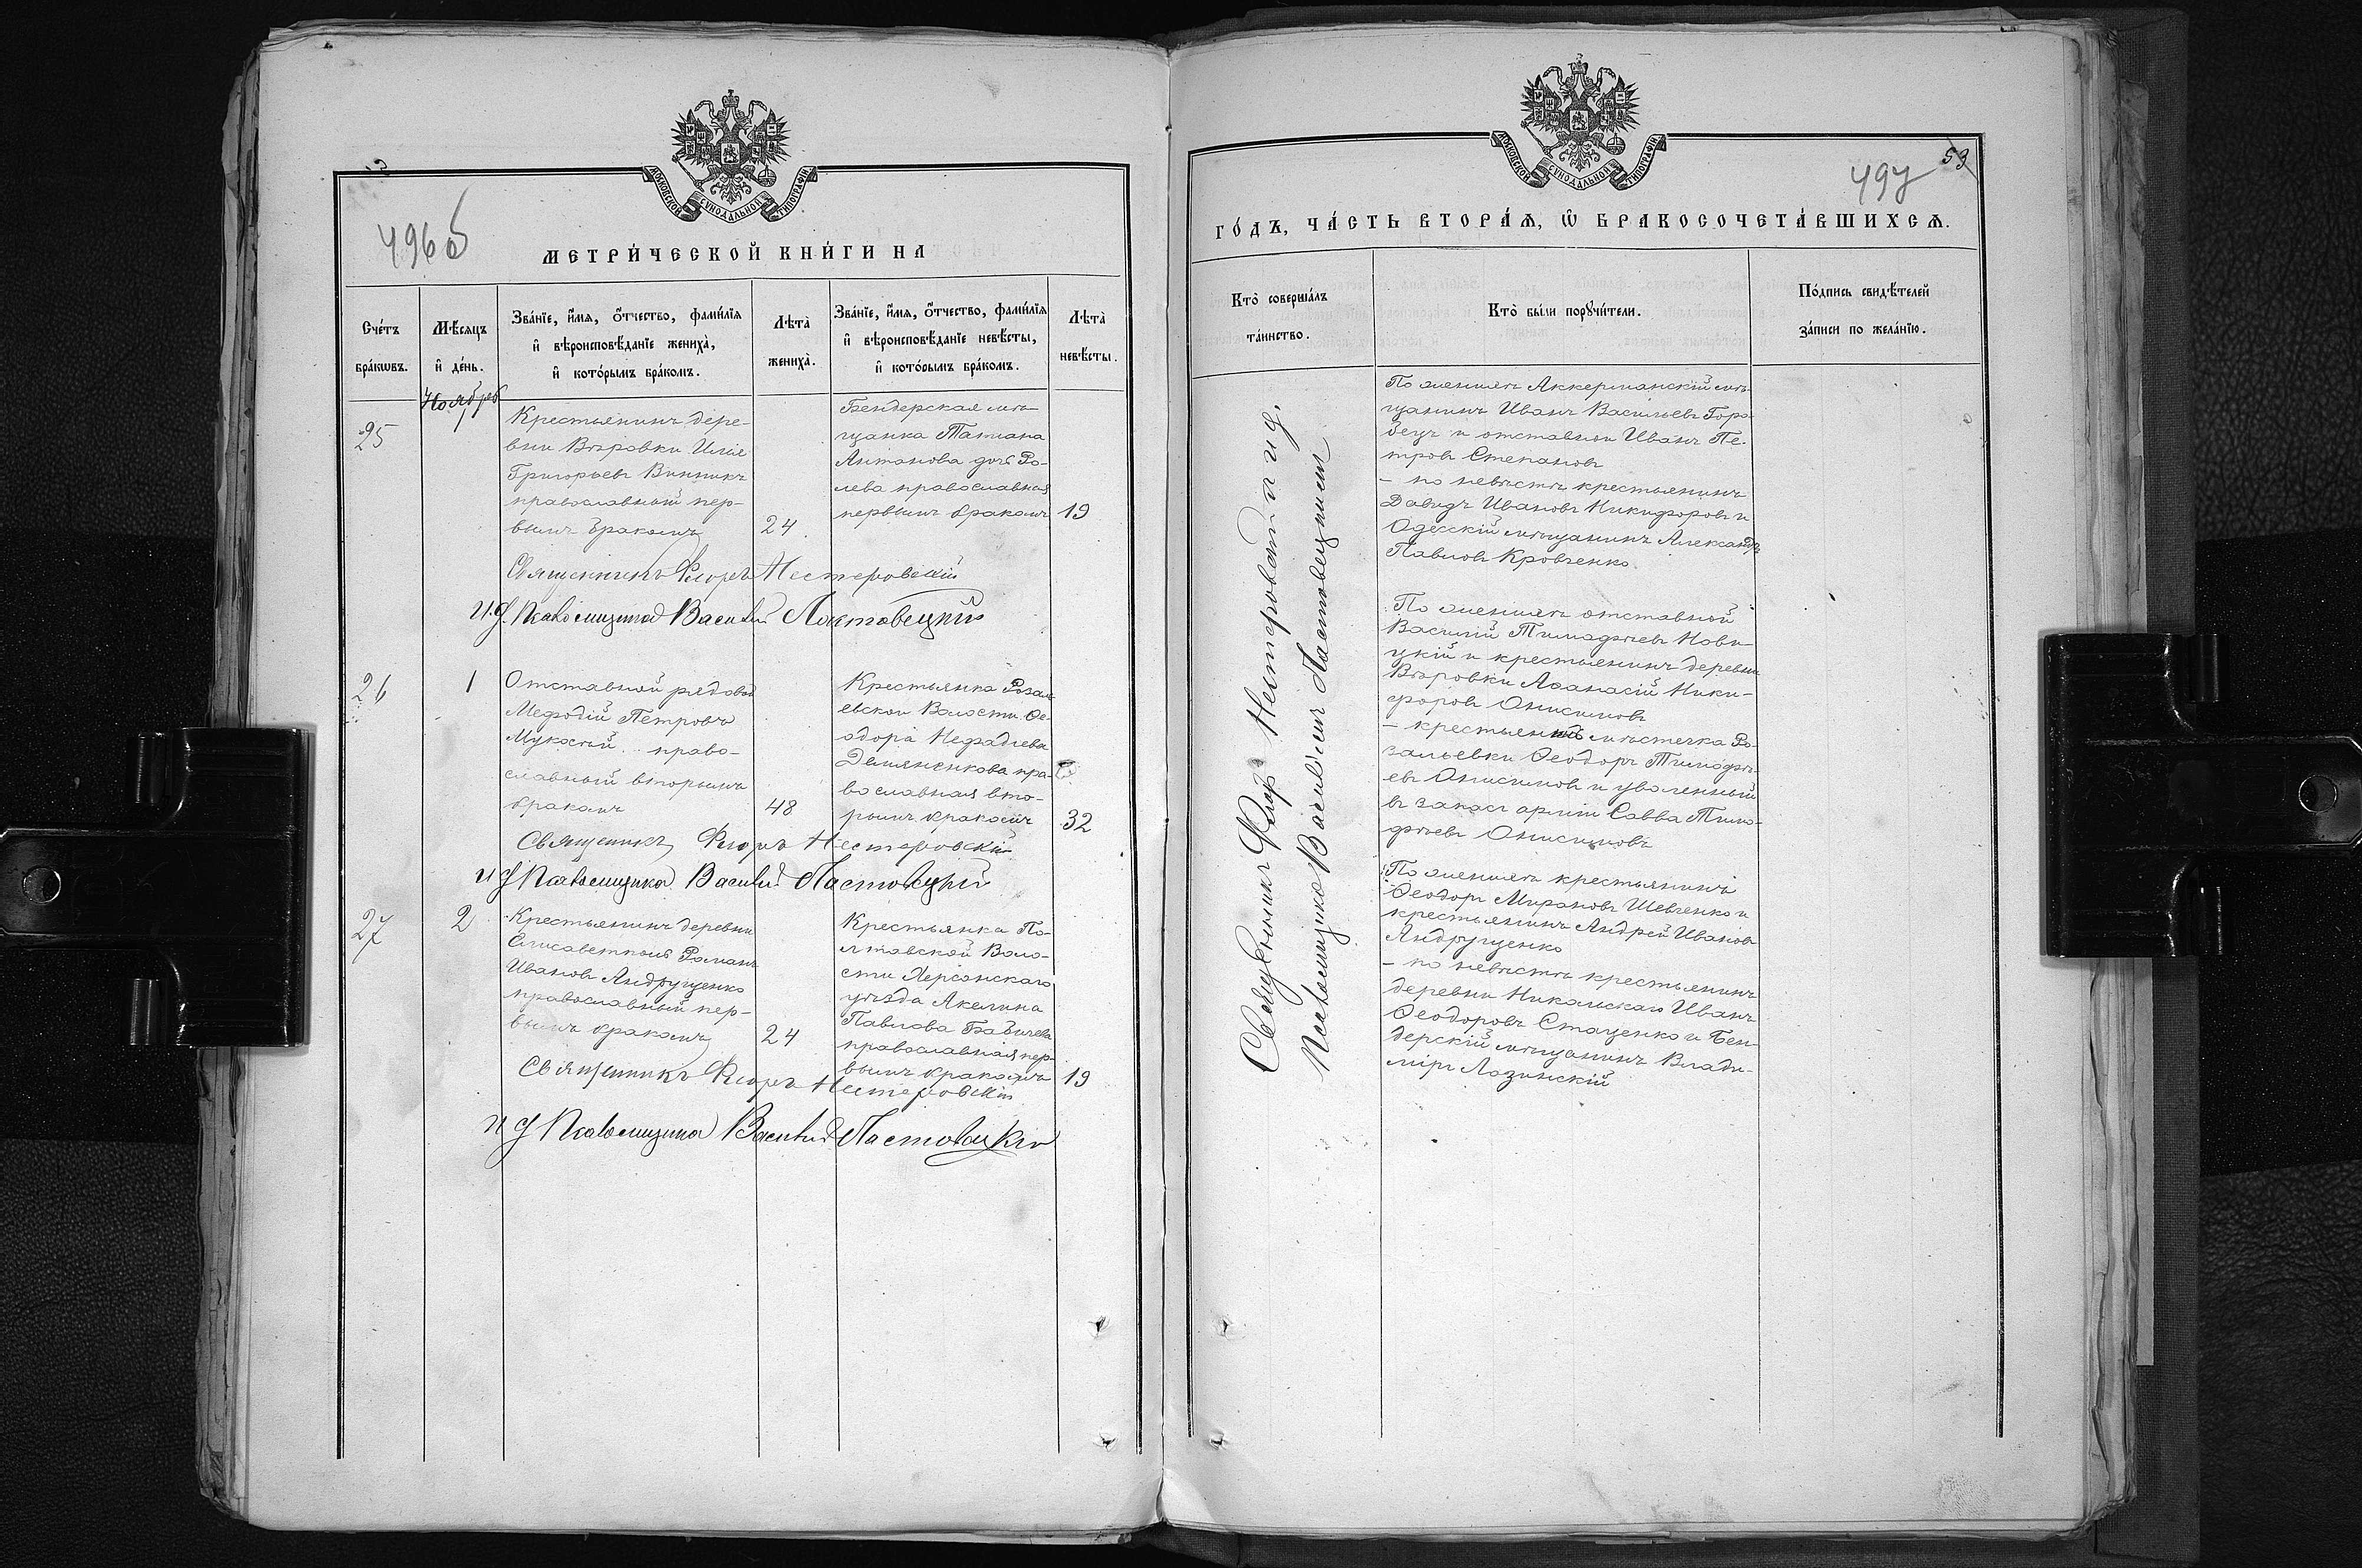 МОСКОВСКОЙ СѴНОДАЛЬНОЙ ТИПОГРАФІИ
496об
МЕТРИ́ЧЕСКОЙ КНИ́ГИ НА
Сче́тъ бра́кωвъ.
Мѣ́сяцъ и҆ де́нь.
Зва́нїе, и҆́мя, ѻ҆́тчество, фами́лїя
и҆ вѣроисповѣ́данїе жениха̀,
и҆ кото́рымъ бра́комъ.
Лѣ́та̀ жениха̀.
Зва́нїе, и҆́мя, ѻ҆́тчество, фами́лїя
и҆ вѣроисповѣ́данїе невѣ́сты,
и҆ кото́рымъ бра́комъ.
Лѣ́та̀ невѣ́сты.
Ноябрь
25
1
Крестьянинъ дере-
вни Вѣровки Илія
Григорьевъ Винникъ
православный пер-
вымъ бракомъ
24
Бендерская мѣ-
щанка Татіана
Антонова дочь Ро-
лева православная
первымъ бракомъ
19
Священникъ Флоръ Нестеровскій
И.д. Псаломщика Василій Ластовецкій
26
1
Отставной рядовой
Мефодій Петровъ
православный вторымъ
бракомъ
48
Крестьянка Розаль
евской Волости Ѳе-
одора Нефадіева
Демяненкова пра-
вославная вто-
рымъ бракомъ
32
Священникъ Флоръ Нестеровскій
и д Псаломщика Василій Ластовецкій
27
2
Крестьянинъ деревни
Елисаветполь Романъ
Ивановъ Андрущенко
православный пер-
вымъ бракомъ
24
Крестьянка По-
лтавской Воло-
сти Херсонскаго
уѣзда Акелина
Павлова
православная пер-
вымъ бракомъ
19
Священникъ Флоръ Нестеровскій
и д Псаломщика Василій Ластовецкій
МОСКОВСКОЙ СѴНОДАЛЬНОЙ ТИПОГРАФІИ
497
53
ГО́ДЪ, ЧА́СТЬ ВТОРА́Ѧ, Ѽ БРАКОСОЧЕТА́ВШИХСѦ.
Кто̀ соверша́лъ
та́инство.
Кто̀ бы́ли порꙋчи́тели.
По́дпись свидѣ́телей
за́писи по жела́нїю.
Священникъ Флоръ Нестеровскій и и.д.
Псаломщика Василій Ластовецкій
По женихѣ Аккерманскій мѣ-
щанинъ Иванъ Васильевъ Горо-
бецъ и отставной Иванъ Пе-
тровъ Степановъ
– по невѣстѣ крестьянинъ
Давидъ Ивановъ Никифоровъ и
Одесскій мѣщанинъ Александръ
Павловъ Кровченко.
По женихѣ отставной
Василій Тимофѣевъ Нови-
цкій и крестьянинъ деревни
Вѣровки Аѳанасій Ники-
форовъ Онисимовъ
– крестьянинъ мѣстечка Ро-
зальевки Ѳеодоръ Тимофѣ-
евъ Онисимовъ и уволенный
въ запасъ арміи Савва Тимо-
фѣевъ Онисимовъ
По женихѣ крестьянинъ
Ѳеодоръ Мироновъ Шевченко и
крестьянинъ Андрей Ивановъ
Андрущенко
– по невѣстѣ крестьянинъ
деревни Никольскаго Иванъ
Ѳеодоровъ Стаценко и Бен-
дерскій мѣщанинъ Влади-
міръ Лозинскій